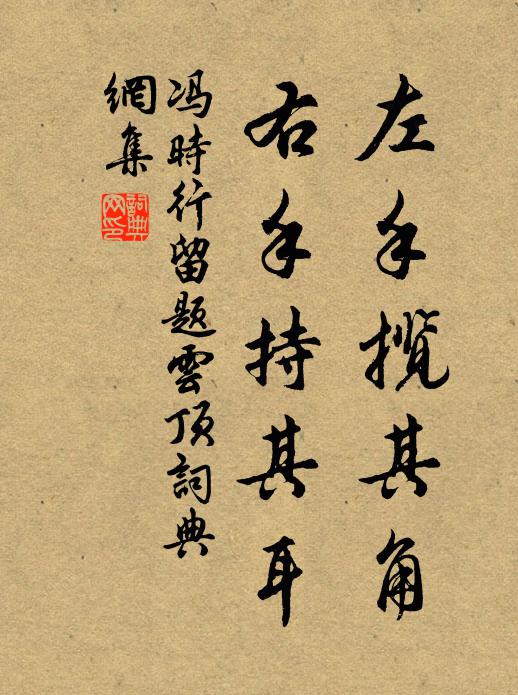 左手揽其角
右手持其耳
冯時行留題雲頂詞典
網集
詞典
网印